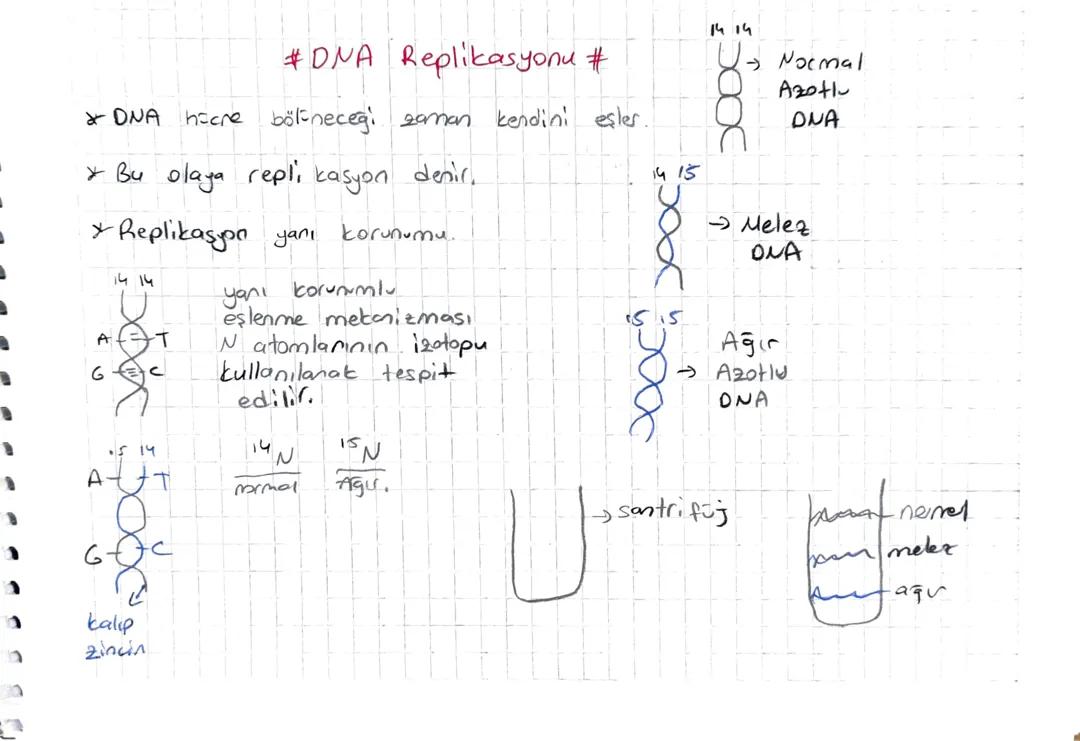 # DNA Replikasyonu #
* DNA hücre bölüneceği zaman kendini eşler.
* Bu olaya repli kasyon denir.
* Replikasyon yarı korunumu.
14 14
A T
G C
yarı korunumlu
eşlenme mekanizması
N atomlarının izotopu
kullanılarak tespit
edilir.
15 14
A T
G C
kalıp
zincir
14N
normal
15N
Ağır.
14 14
→ Normal
Azotlu
DNA
14 15
→ Melez
DNA
15 15
Ağır
→ Azotlu
DNA
→ santrifüj
melez
ağır